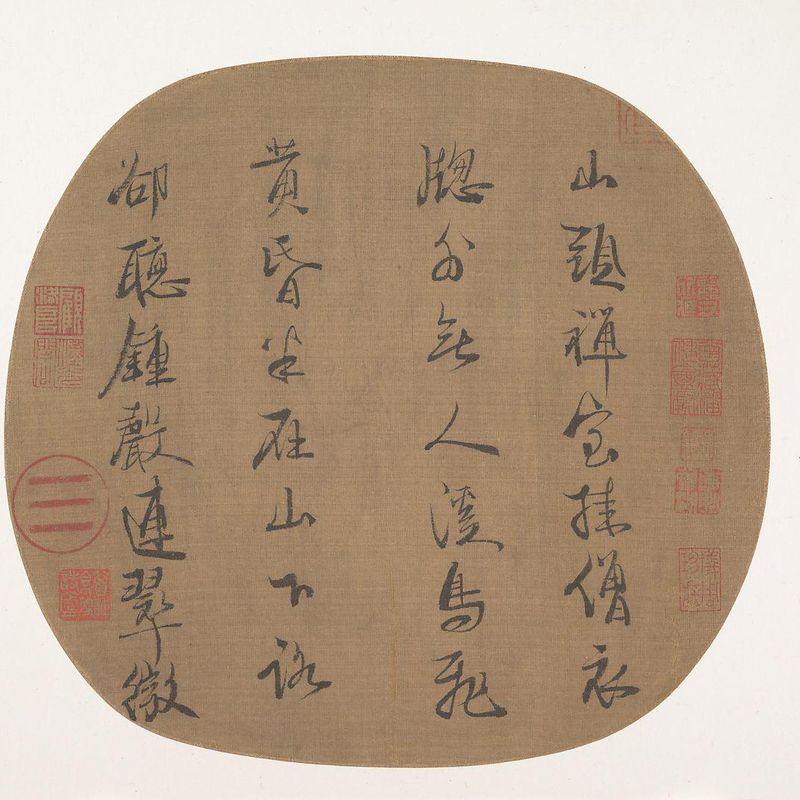 山頭禪室挂僧衣
牎外無人溪鳥飛
黄昏半在山下路
卻聽鍾聲連翠微